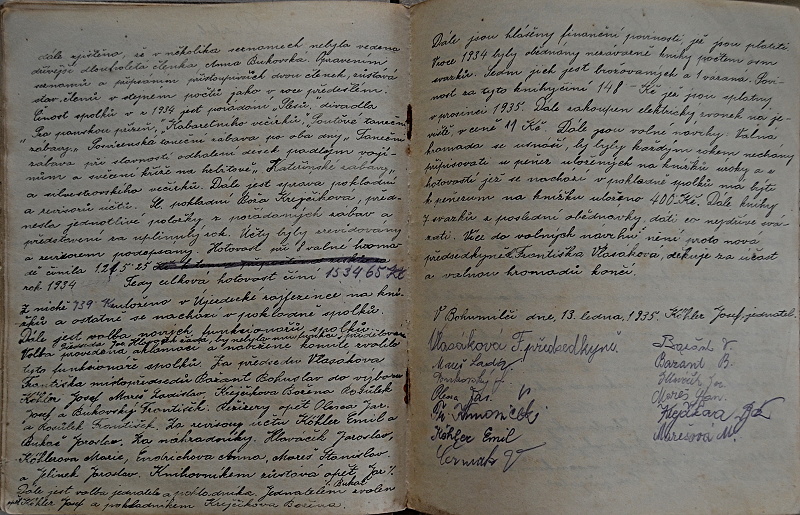 dále zjištěno, že v několika seznamech nebyla vedena
důvější dlouholetá členka Anna Bukovská. Opravením
seznamů a připsáním přistoupivších dvou členek, zůstává
stav členů v stejném počtu jako v roce předešlém.
Činost spolků v r. 1934 jest pořádání "Plesů", divadla
"Za panskou přízeň", "Kabaretního večírků", Pouťové taneční
zábavy", Posvícenská taneční zábava po oba dny, "Taneční
zábava při slavnosti odhalení desek padlým vojí-
nům a svěcení kříže na hřbitově" "Kateřinské zábavy"
a silvestrovského večírků. Dále jest zpráva pokladní
a revisorů účtů. Sl. pokladní Boža Krejčíková, pred-
nesla jednotlivé položky z pořádaných zábav a
představení za uplinulý rok. Účty byly revidovány
a revisorem podepsány. Hotovost při valné hroma-
dě činila
rok 1934 Tedy celkova hotovost činí 1534,65 Kč
Z nichž 739 Kč uloženo v Újezdecké rajfezence na kní-
žků a ostatně se nachází v pokladně spolků.
Dále jest volba novych funkcionařů spolků.
Volba provedena aklamací a navržené komitě zvolilo
tyto funkcionáře spolků. Za předsedu Vlasákova
Františka místopředsedů Bažant Bohuslav do výboru
Köhler Josef Mareš Ladislav, Krejčíková Božena Košůlek
Josef a Bukovský František. Rezervy opět Plesač Jar.
a Košůlek František. Za revisory účtů Köhler Emil a
Bukač Jaroslav. Za náhradníky. Hlaváček Jaroslav,
Köhlerová Marie, Endrichova Anna, Mareš Stanislav.
a Jelínek Jaroslav. Knihovníkem zůstává opět Jar.
Bukač
Dále jest volba jednatele a pokladníka. Jednatelem zvolen
Köhler Josef a pokladníkem Krejčíková Božena.
Dále jsou hlášeny finanční povinosti, jež jsou platiti.
V roce 1934 byly objednány nezávazné knihy počtem osm
svazků. Sedm jich jest brožovaných a 1 vázaná. Povi-
nost za tyto knihy činí 148 - Kč jež jsou splatny
v prosinci 1935. Dále zakoupen elektrický zvonek na je-
viště, v ceně 19 Kč. Dále jsou volné návrhy. Valná
hromada se usnáší, by byly každým rokem nechány
připisovati se peněz uložených na knížků úroky a z
hotovosti jež se nachází v pokladně spolků má býti
k penězům na knížku uloženo 400 Kč. Dále knihy
7 svazků z poslední objednavky, dáti co nejdříve svá-
zati. Více do volných navrhů není proto nová
předsedkyně Františka Vlasákova, děkuje za účast
a valnou hromadů končí.
V Bohumilči dne, 13. ledna, 1935. Köhler Josef jednatel.
Vlasáková F. předsedkyně
Mareš Ladis.
Köhler Emil
Bažant B.
Mareš Stan.
Marešová M.